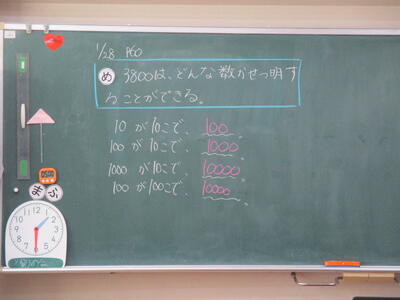 1/28 P60
め 3800は、どんな数かせつ明す
ることができる。
10が10こで、100。
100が10こで、1000。
1000が10こで、10000。
100が100こで、10000。
まぶ